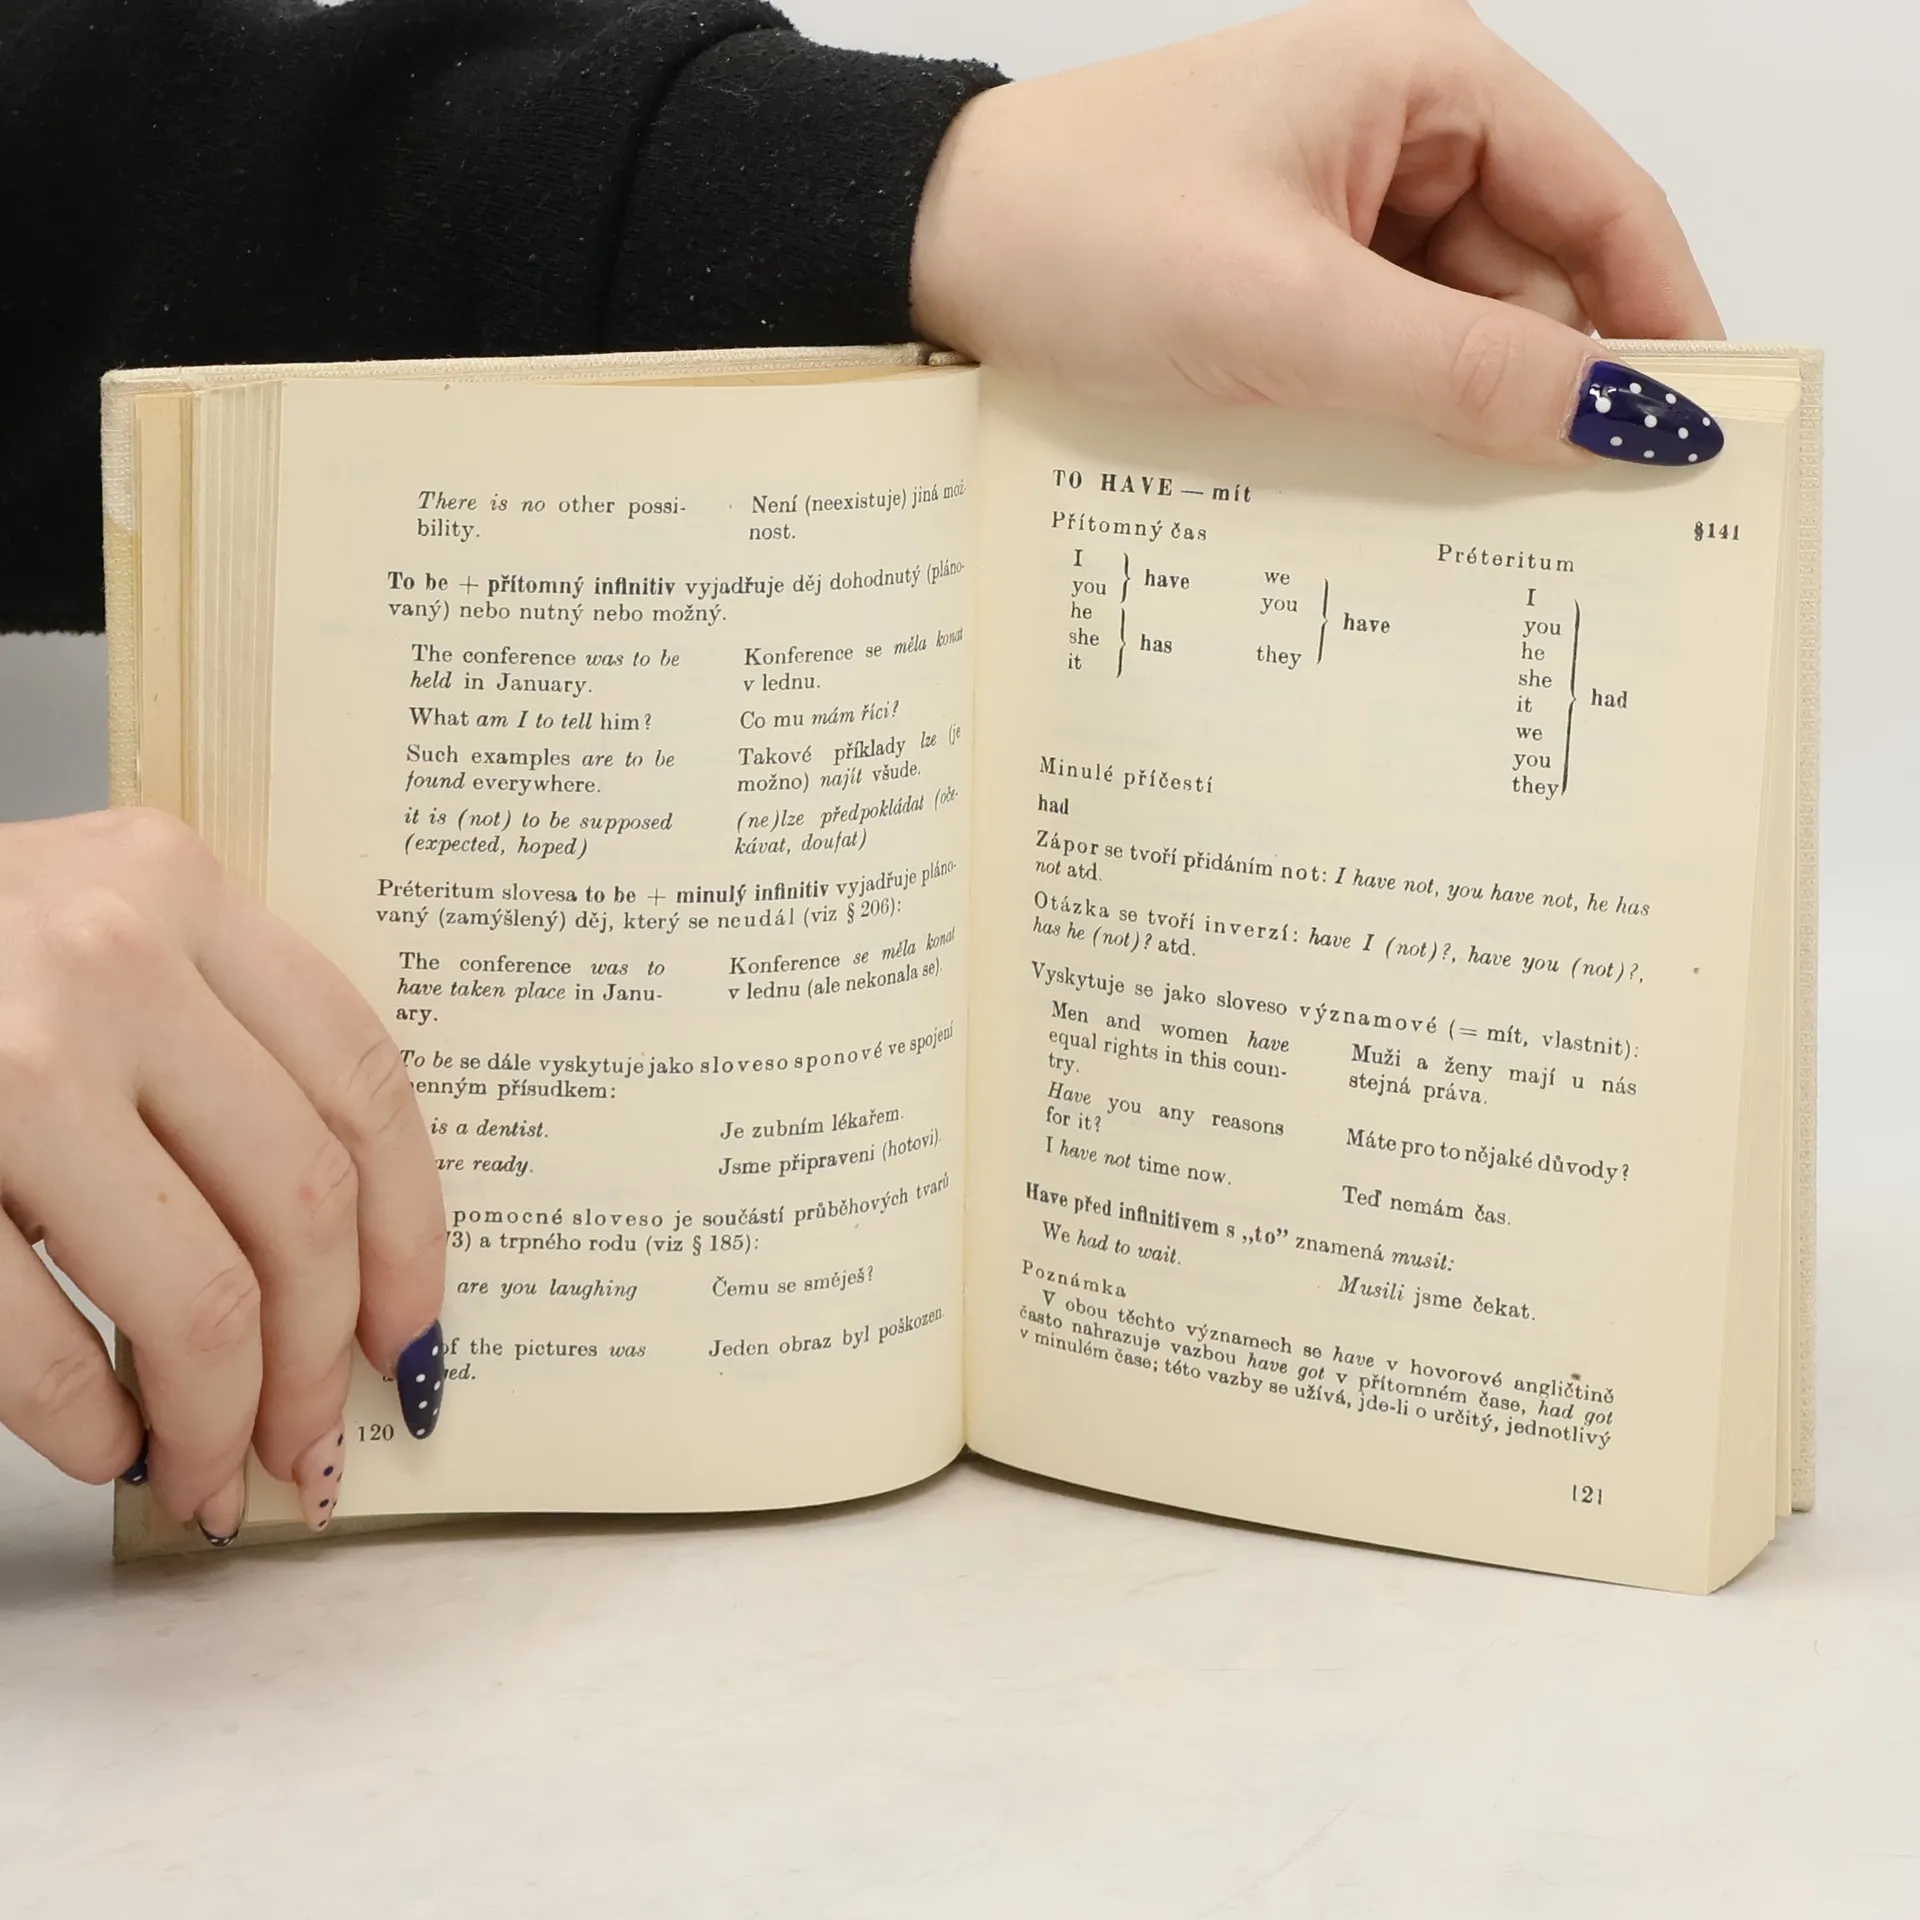 There is no other possi-
bility.
Není (neexistuje) jiná mož-
nost.
To be + přítomný infinitiv vyjadřuje děj dohodnutý (pláno-
vaný) nebo nutný nebo možný.
The conference was to be
held in January.
Konference se měla konat
v lednu.
What am I to tell him?
Co mu mám říci?
Such examples are to be
found everywhere.
Takové příklady lze (je
možno) najít všude.
it is (not) to be supposed
(expected, hoped)
(ne)lze předpokládat (oče-
kávat, doufat)
Préteritum slovesa to be + minulý infinitiv vyjadřuje pláno-
vaný (zamýšlený) děj, který se neudál (viz § 206):
The conference was to
have taken place in Janu-
ary.
Konference se měla konat
v lednu (ale nekonala se).
To be se dále vyskytuje jako sloveso sponové ve spojení
přísudkem:
is a dentist.
Je zubním lékařem.
are ready.
Jsme připraveni (hotovi).
pomocné sloveso je součástí průběhových tvarů
a trpného rodu (viz § 185):
are you laughing
Čemu se směješ?
of the pictures was
Jeden obraz byl poškozen.
120
TO HAVE — mít
§141
Přítomný čas
Préteritum
I
you
have
he
she
it
has
we
you
they
have
I
you
he
she
it
we
you
they
had
Minulé příčestí
had
Zápor se tvoří přidáním not: I have not, you have not, he has
not atd.
Otázka se tvoří inverzí: have I (not)?, have you (not)?,
has he (not)? atd.
Vyskytuje se jako sloveso významové (= mít, vlastnit):
Men and women have
equal rights in this coun-
try.
Muži a ženy mají u nás
stejná práva.
Have you any reasons
for it?
Máte pro to nějaké důvody?
I have not time now.
Teď nemám čas.
Have před infinitivem s „to” znamená musit:
We had to wait.
Musili jsme čekat.
Poznámka
V obou těchto významech se have v hovorové angličtině
často nahrazuje vazbou have got v přítomném čase, had got
v minulém čase; této vazby se užívá, jde-li o určitý, jednotlivý
121